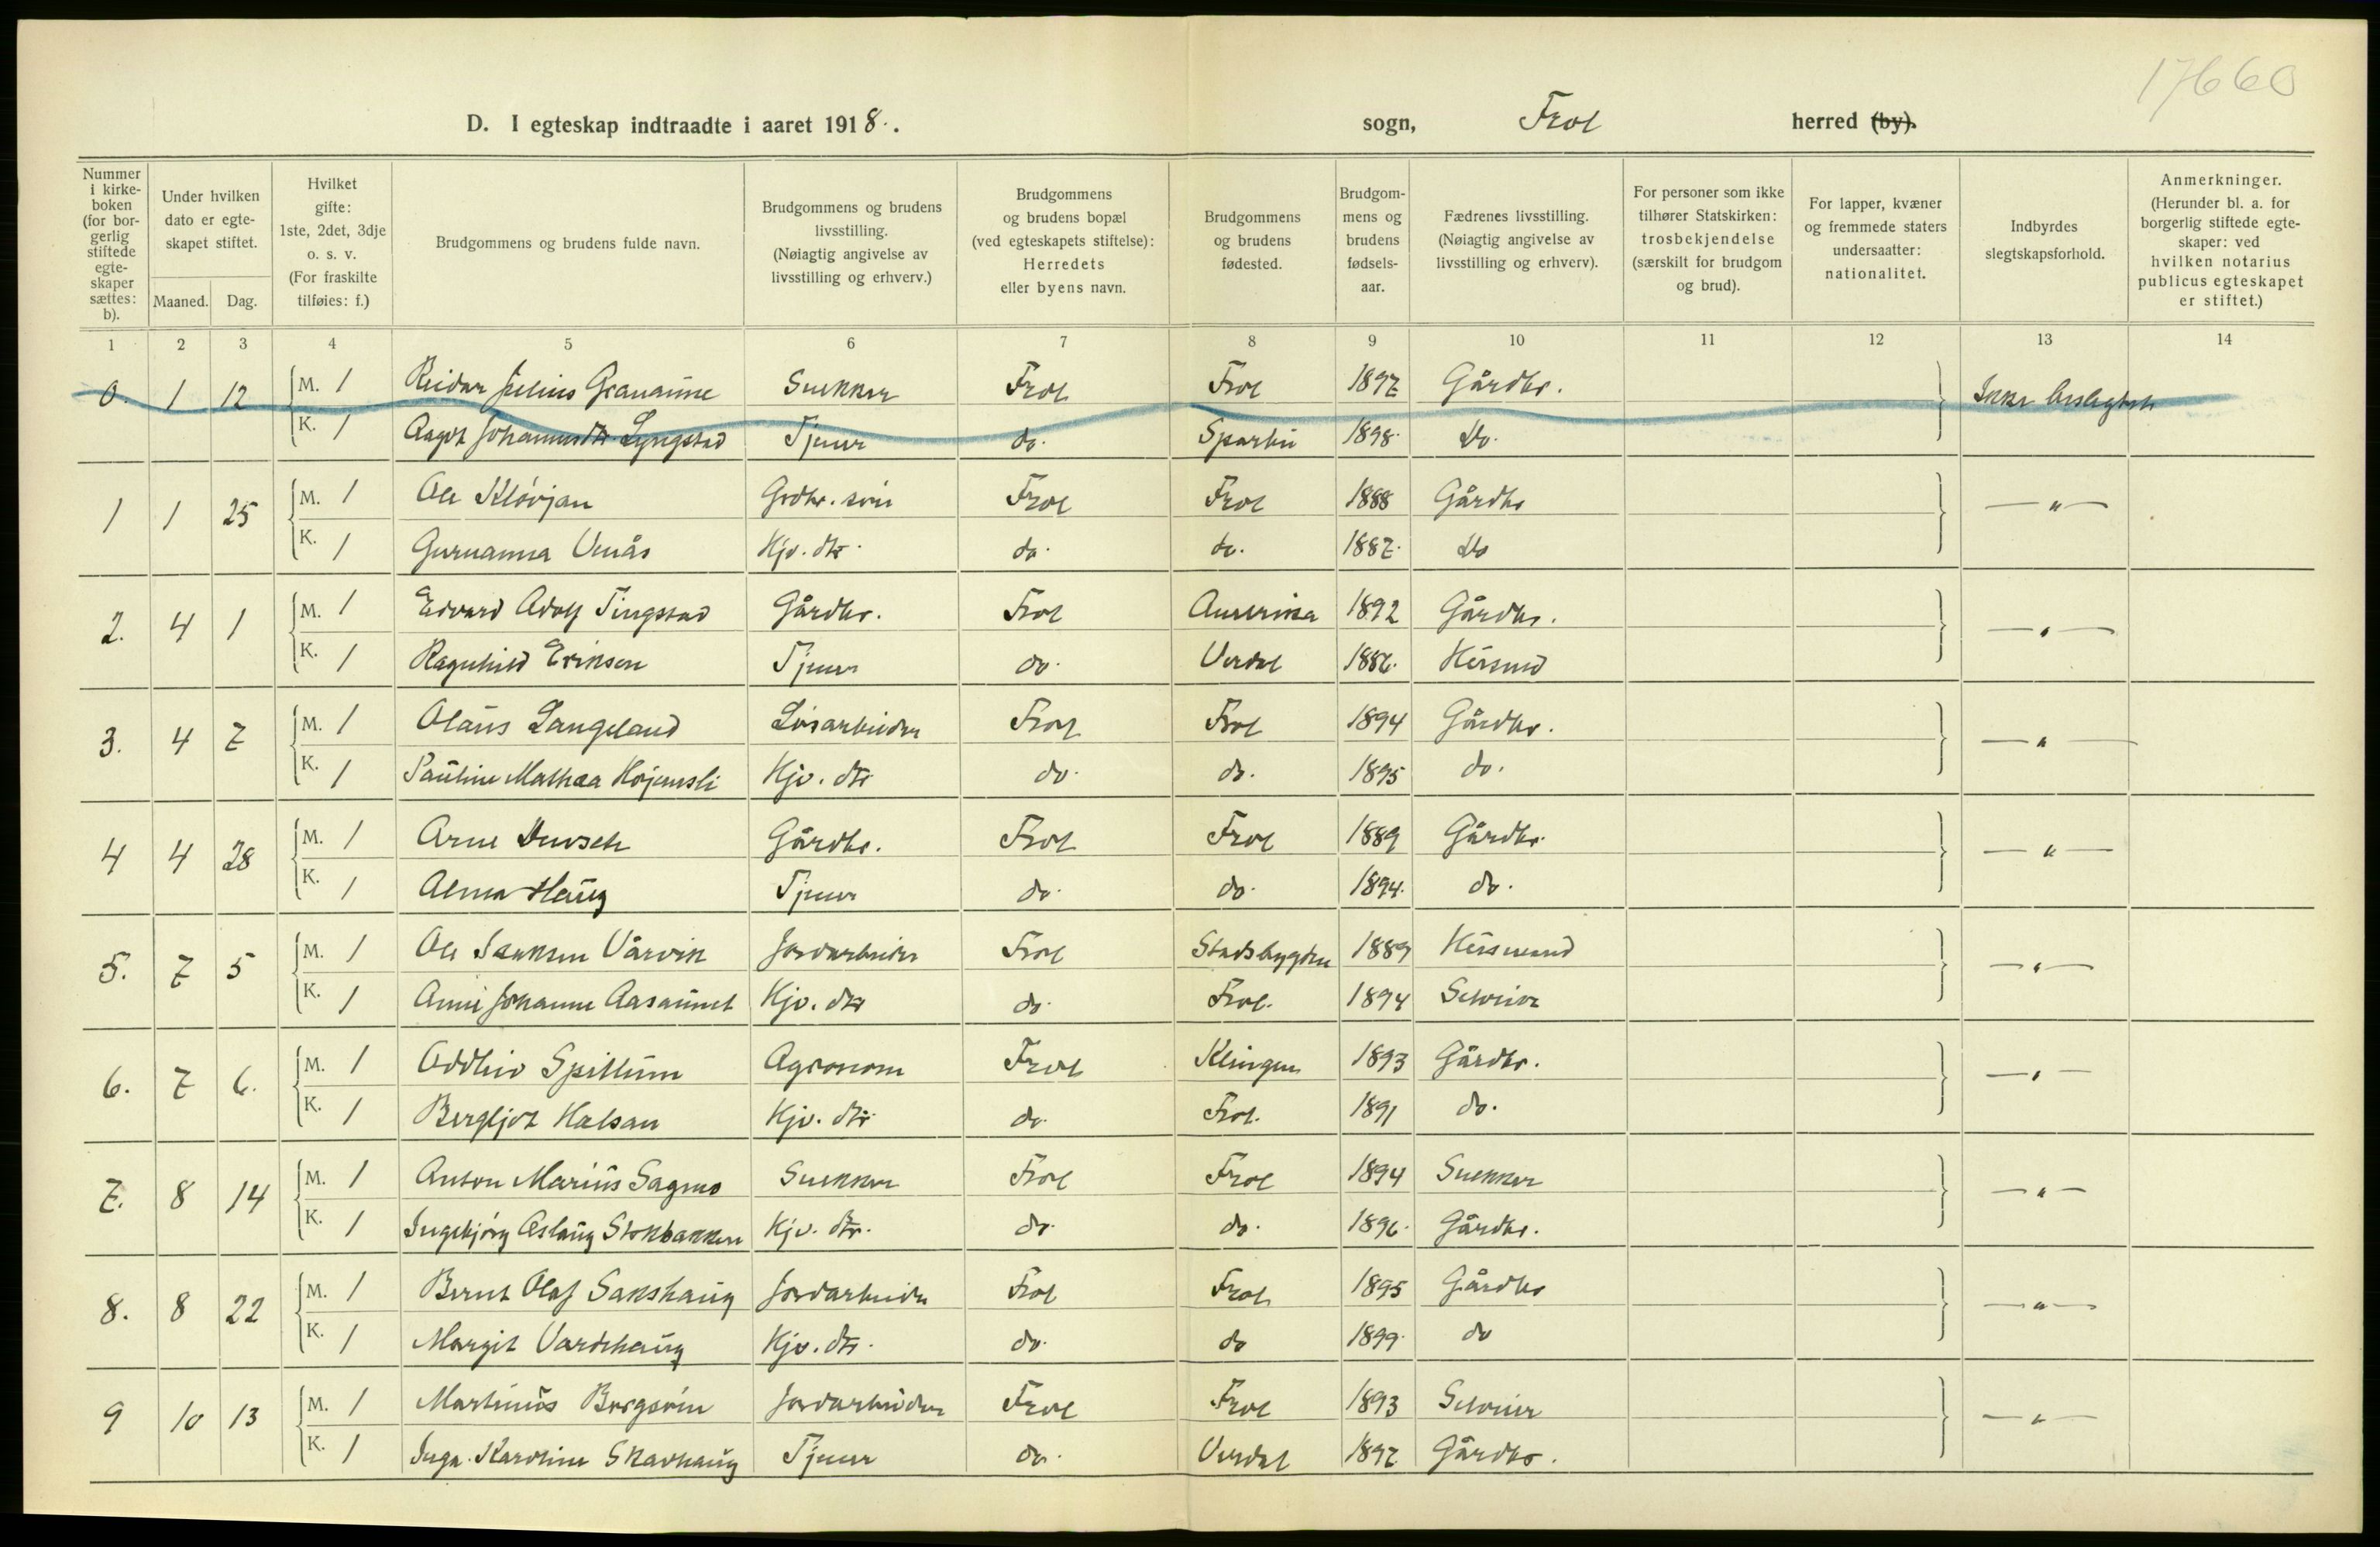 17660
D. I egteskap indtraadte i aaret 1918. sogn, Frol herred (by).
Nummer i kirkeboken (for borgerlig stiftede egteskaper sættes: b).
Under hvilken dato er egteskapet stiftet.
Maaned. Dag.
Hvilket gifte: 1ste, 2det, 3dje o. s. v. (For fraskilte tilføies: f.)
Brudgommens og brudens fulde navn.
Brudgommens og brudens livsstilling. (Nøiagtig angivelse av livsstilling og erhverv.)
Brudgommens og brudens bopæl (ved egteskapets stiftelse): Herredets eller byens navn.
Brudgommens og brudens fødested.
Brudgommens og brudens fødselsaar.
Fædrenes livsstilling. (Nøiagtig angivelse av livsstilling og erhverv).
For personer som ikke tilhører Statskirken: trosbekjendelse (særskilt for brudgom og brud).
For lapper, kvæner og fremmede staters undersaatter: nationalitet.
Indbyrdes slegtskapsforhold.
Anmerkninger. (Herunder bl. a. for borgerlig stiftede egteskaper: ved hvilken notarius publicus egteskapet er stiftet.)
1 2 3 4 5 6 7 8 9 10 11 12 13 14
0. 1 12 M. 1 Reidar Julius Granaune Snekker Frol Frol 1897 Gårdbr. Ikke beslegtet
K. 1 Aagot Johannesdtr Lyngstad Tjener do. Sparbu 1898. Do.
1 1 25 M. 1 Ole Kløvjan Grdbr. søn Frol Frol 1888 Gårdbr — " —
K. 1 Gurnanna Venås Hjv. dtr. do. do. 1887. Do
2. 4 1 M. 1 Edvard Adolf Tingstad Gårdbr. Frol Amerika 1892 Gårdbr. — " —
K. 1 Ragnhild Eriksen Tjener do. Verdal 1886. Husmd
3. 4 7 M. 1 Olaus Langeland Løsarbeider Frol Frol 1894 Gårdbr. — " —
K. 1 Pauline Mathea Højemsli Hjv. dtr do. do. 1895 do.
4 4 28 M. 1 Arne Gårdbr. Frol Frol 1889 Gårdbr. — " —
K. 1 Alma Haug Tjener do. do. 1894. do.
5. 7 5 M. 1 Ole Vårvik Jordarbeider Frol Stadsbygden 1889 Husmand — " —
K. 1 Anne Johanne Aasaunet Hjv. dtr do. Frol. 1894 Selveier
6. 7 6. M. 1 Oddleiv Spillum Agronom Frol Klingen 1893 Gårdbr. — " —
K. 1 Bergljot Halsan Hjv. dtr. do. Frol. 1891 do.
7. 8 14 M. 1 Anton Marius Sagmo Snekker Frol Frol 1894 Snekker — " —
K. 1 Ingebjørg Aslaug Stokbakken Hjv. dtr. do. do. 1896. Gårdbr.
8. 8 22 M. 1 Bernt Olaf Sakshaug Jordarbeider Frol Frol 1895 Gårdbr — " —
K. 1 Margit Vardehaug Hjv. dtr. do. do 1899. do
9 10 13 M. 1 Martinus Borgsvin Jordarbeider Frol Frol 1893 Selveier — " —
K. 1 Inga Karoline Skavhaug Tjener do. Verdal 1897 Gårdbr.